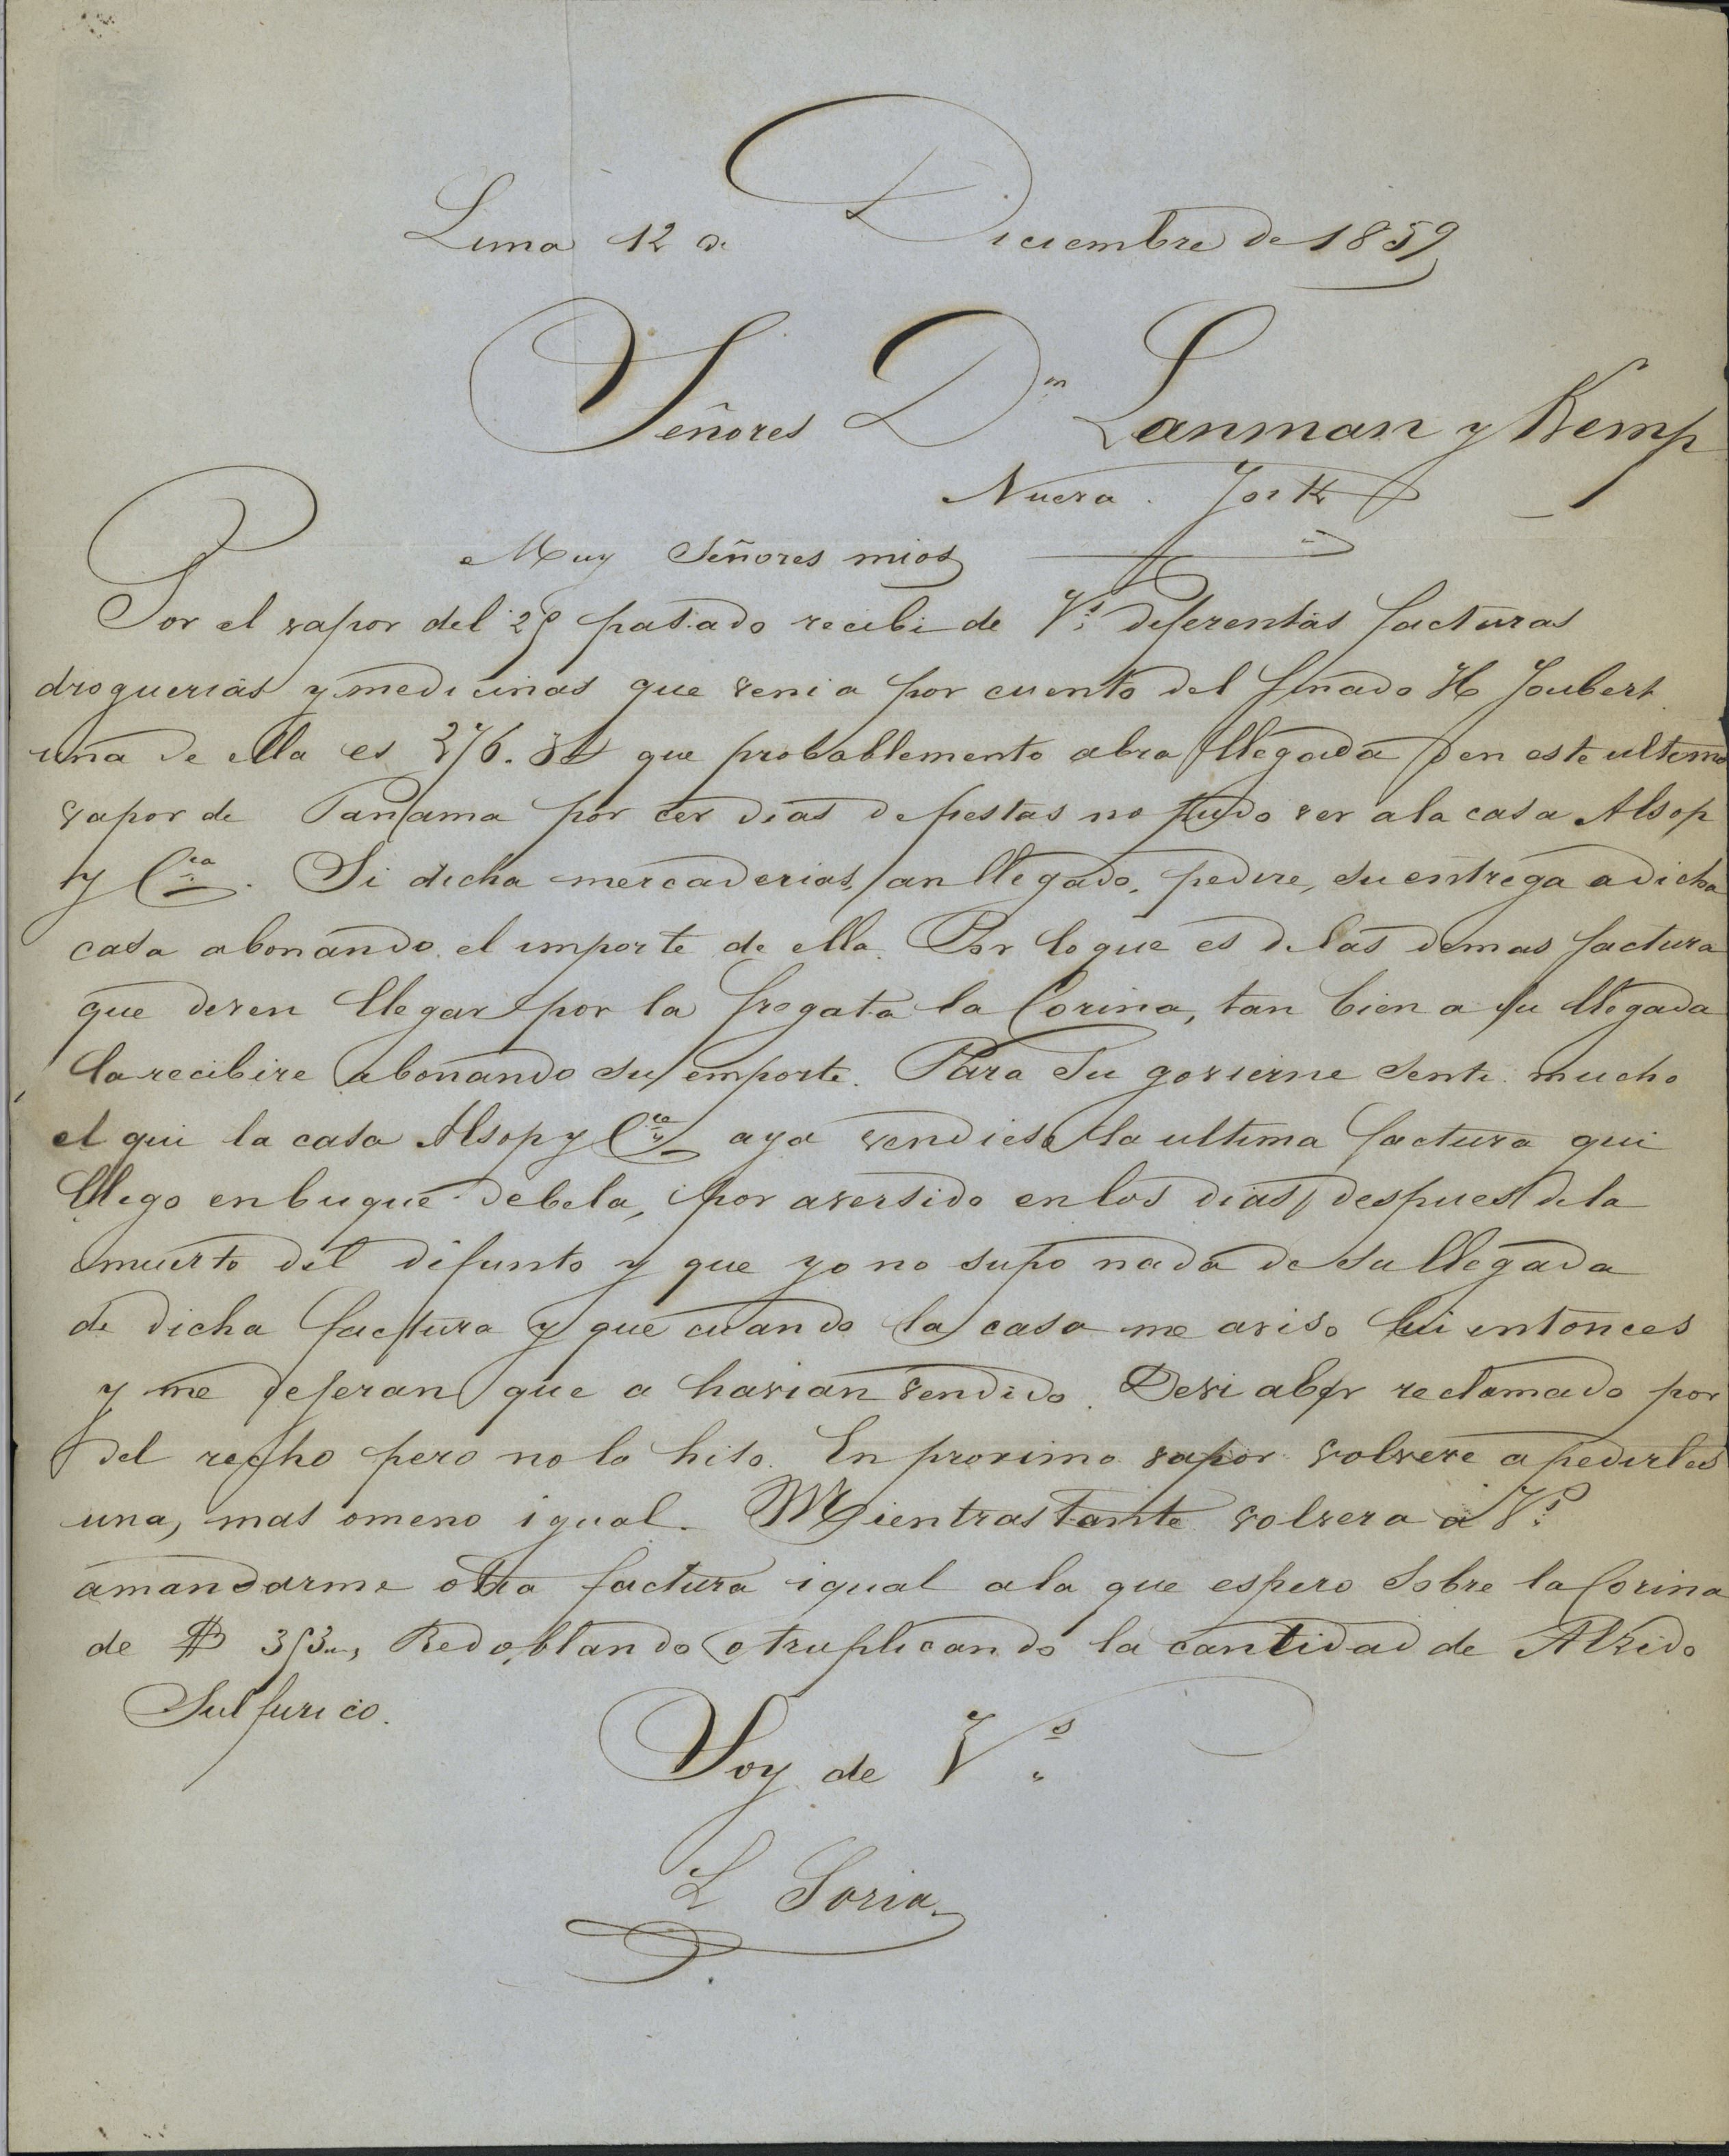 Lima 12 de Diciembre de 1859
Señores Dn Lanman y Kemp
Nueva York
Muy Señores mios
Por el vapor del 29 pasado recibi de Vs. diferentas facturas
droguerias y medicinas que venia por cuento del finado H Joubert
una de ella es que probablemento abra llegada en este ultimo
vapor de Panama por cer dias de fiestas no pudo ver a la casa Alsop
y Cia. Si dicha mercaderias an llegado, pedire, su entrega a dicha
casa abonando el importe de ella. Por lo que es de las demas factura
que deven llegar por la fregata la Corina, tan bien a su llegada
la recibire abonando su emporte. Para Su govierne Senti mucho
el qui la casa Alsop y Cia aya vendiese la ultima factura qui
llego en buque de bela, por aversido en los dias despues de la
muerto del difunto y que yo no supo nada de su llegada
de dicha factura y que cuando la casa me aviso fui entonces
y me deferan que a havian vendido. Devi aber reclamado por
del recho pero no lo hiso. En proximo vapor volvere a pedirles
una, mas o meno igual. Mientrastante volvera a Vs.
amandarme otra factura igual a la que espero Sobre la Corina
de $ Redoblando o truplicando la cantidad de Alxido
Sulfurico.
Soy de Vs.
L Soria